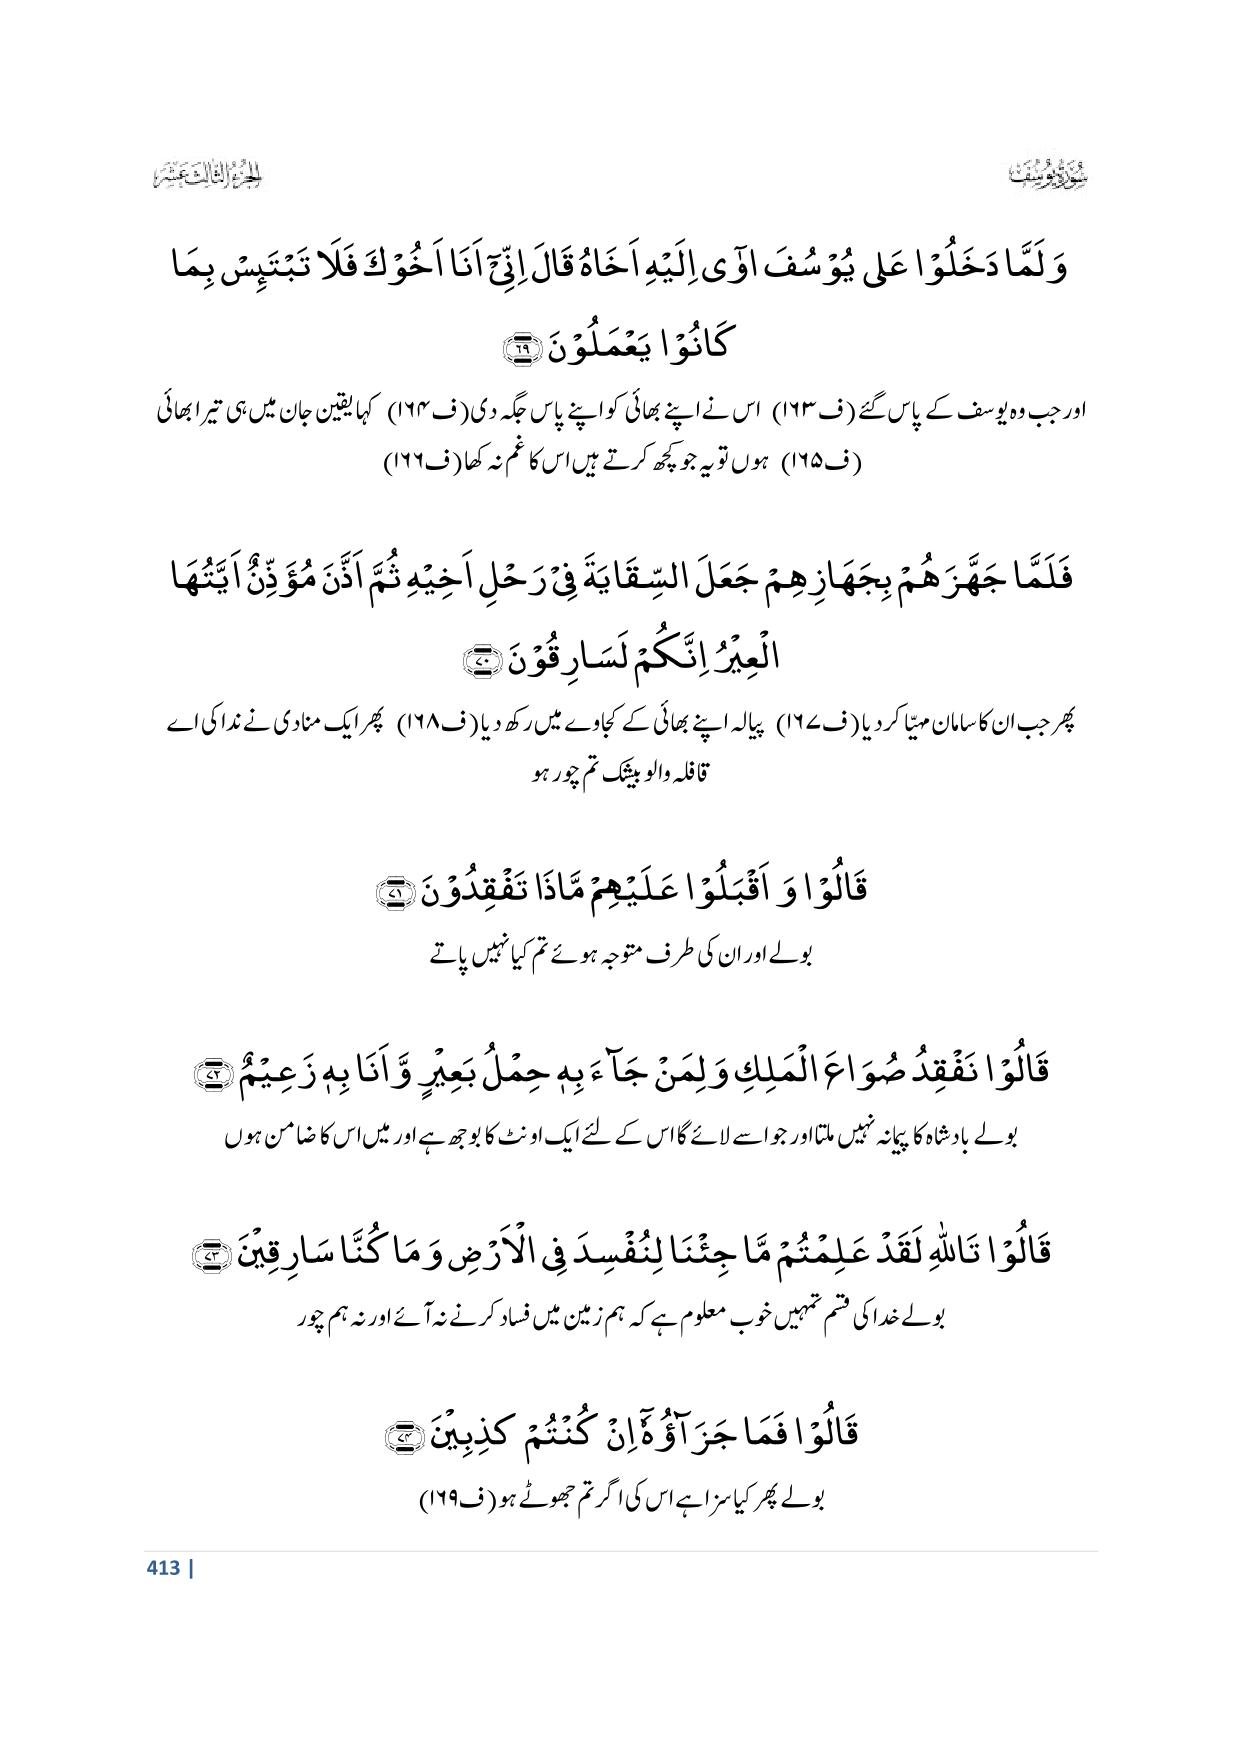 سُوْرَةُ يُوْسُفَ
الجُزْءُ الثَّالِثَ عَشَرَ
وَ لَمَّا دَخَلُوْا عَلٰى يُوْسُفَ اٰوٰۤى اِلَيْهِ اَخَاهُ قَالَ اِنِّیْۤ اَنَا اَخُوْكَ فَلَا تَبْتَىِٕسْ بِمَا
كَانُوْا يَعْمَلُوْنَ ﴿٦٩﴾
اور جب وہ یوسف کے پاس گئے (ف۱۶۳) اس نے اپنے بھائی کو اپنے پاس جگہ دی (ف۱۶۴) کہا یقین جان میں ہی تیرا بھائی
(ف۱۶۵) ہوں تو یہ جو کچھ کرتے ہیں اس کا غم نہ کھا (ف۱۶۶)
فَلَمَّا جَهَّزَهُمْ بِجَهَازِهِمْ جَعَلَ السِّقَايَةَ فِیْ رَحْلِ اَخِيْهِ ثُمَّ اَذَّنَ مُؤَذِّنٌ اَيَّتُهَا
الْعِيْرُ اِنَّكُمْ لَسَارِقُوْنَ ﴿٧٠﴾
پھر جب ان کا سامان مہیّا کر دیا (ف۱۶۷) پیالہ اپنے بھائی کے کجاوے میں رکھ دیا (ف۱۶۸) پھر ایک منادی نے ندا کی اے
قافلہ والو بیشک تم چور ہو
قَالُوْا وَ اَقْبَلُوْا عَلَيْهِمْ مَّاذَا تَفْقِدُوْنَ ﴿٧١﴾
بولے اور ان کی طرف متوجہ ہوئے تم کیا نہیں پاتے
قَالُوْا نَفْقِدُ صُوَاعَ الْمَلِكِ وَ لِمَنْ جَآءَ بِهٖ حِمْلُ بَعِيْرٍ وَّ اَنَا بِهٖ زَعِيْمٌ ﴿٧٢﴾
بولے بادشاہ کا پیمانہ نہیں ملتا اور جو اسے لائے گا اس کے لئے ایک اونٹ کا بوجھ ہے اور میں اس کا ضامن ہوں
قَالُوْا تَاللّٰهِ لَقَدْ عَلِمْتُمْ مَّا جِئْنَا لِنُفْسِدَ فِی الْاَرْضِ وَ مَا كُنَّا سَارِقِيْنَ ﴿٧٣﴾
بولے خدا کی قسم تمہیں خوب معلوم ہے کہ ہم زمین میں فساد کرنے نہ آئے اور نہ ہم چور
قَالُوْا فَمَا جَزَآؤُهٗۤ اِنْ كُنْتُمْ كٰذِبِيْنَ ﴿٧٤﴾
بولے پھر کیا سزا ہے اس کی اگر تم جھوٹے ہو (ف۱۶۹)
413 |